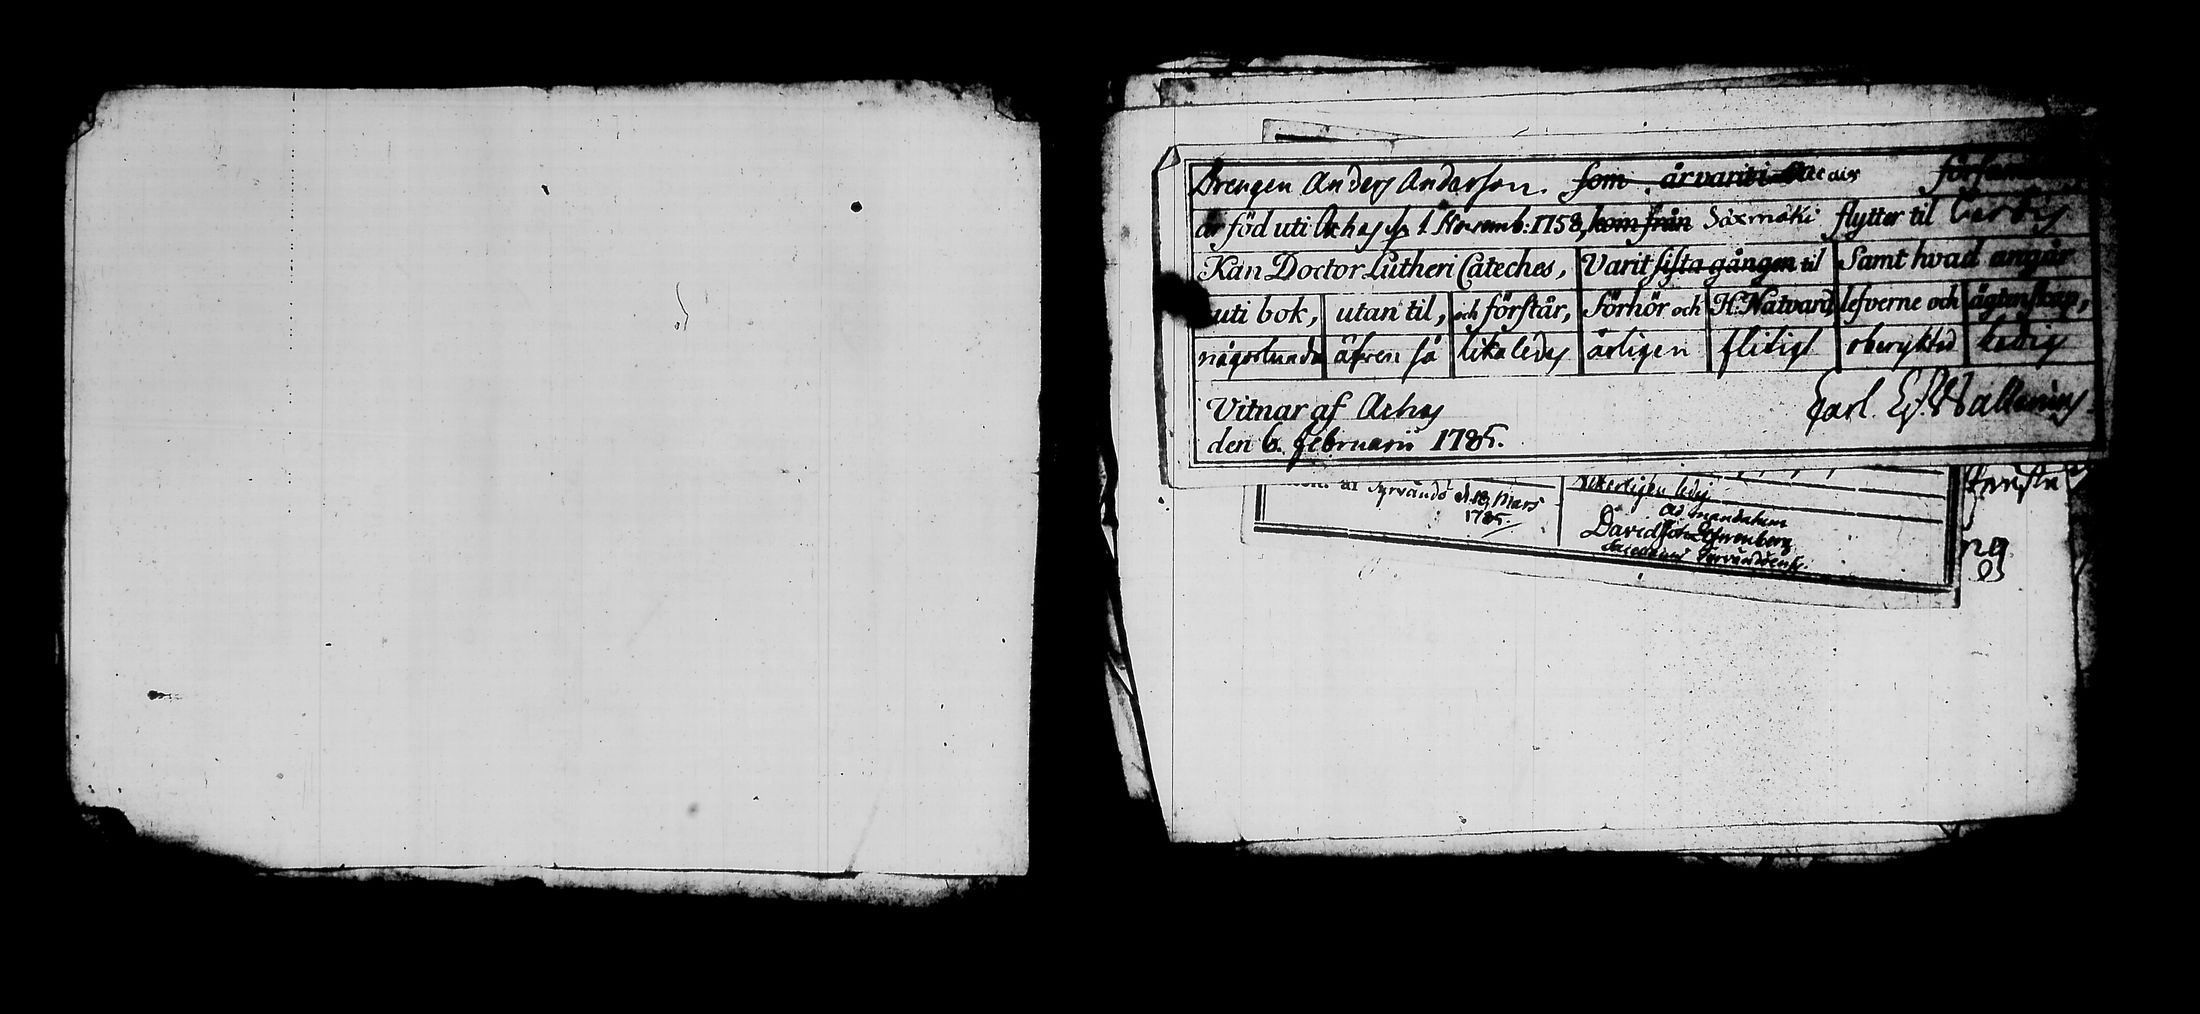 Drengen Anders Anderson. som är varit i försam
är föd uti Achas d. 1 Novemb: 1758, kom från Säxmäki flytter til
Kan Doctor Lutheri Cateches, Varit sista gången til Samt hvad angår
uti bok, utan til, och förstår, Förhör och H. Natvard, lefverne och ägtenskap,
någorlunda äfven så likaledes årligen flitigt oberyktad ledig
Vitnar af Achas
den 6. Februarii 1785.
Carl Wallenius.
af Tyrvändö d. 18 Mars
1785.
ledig
Ad mandatum
David